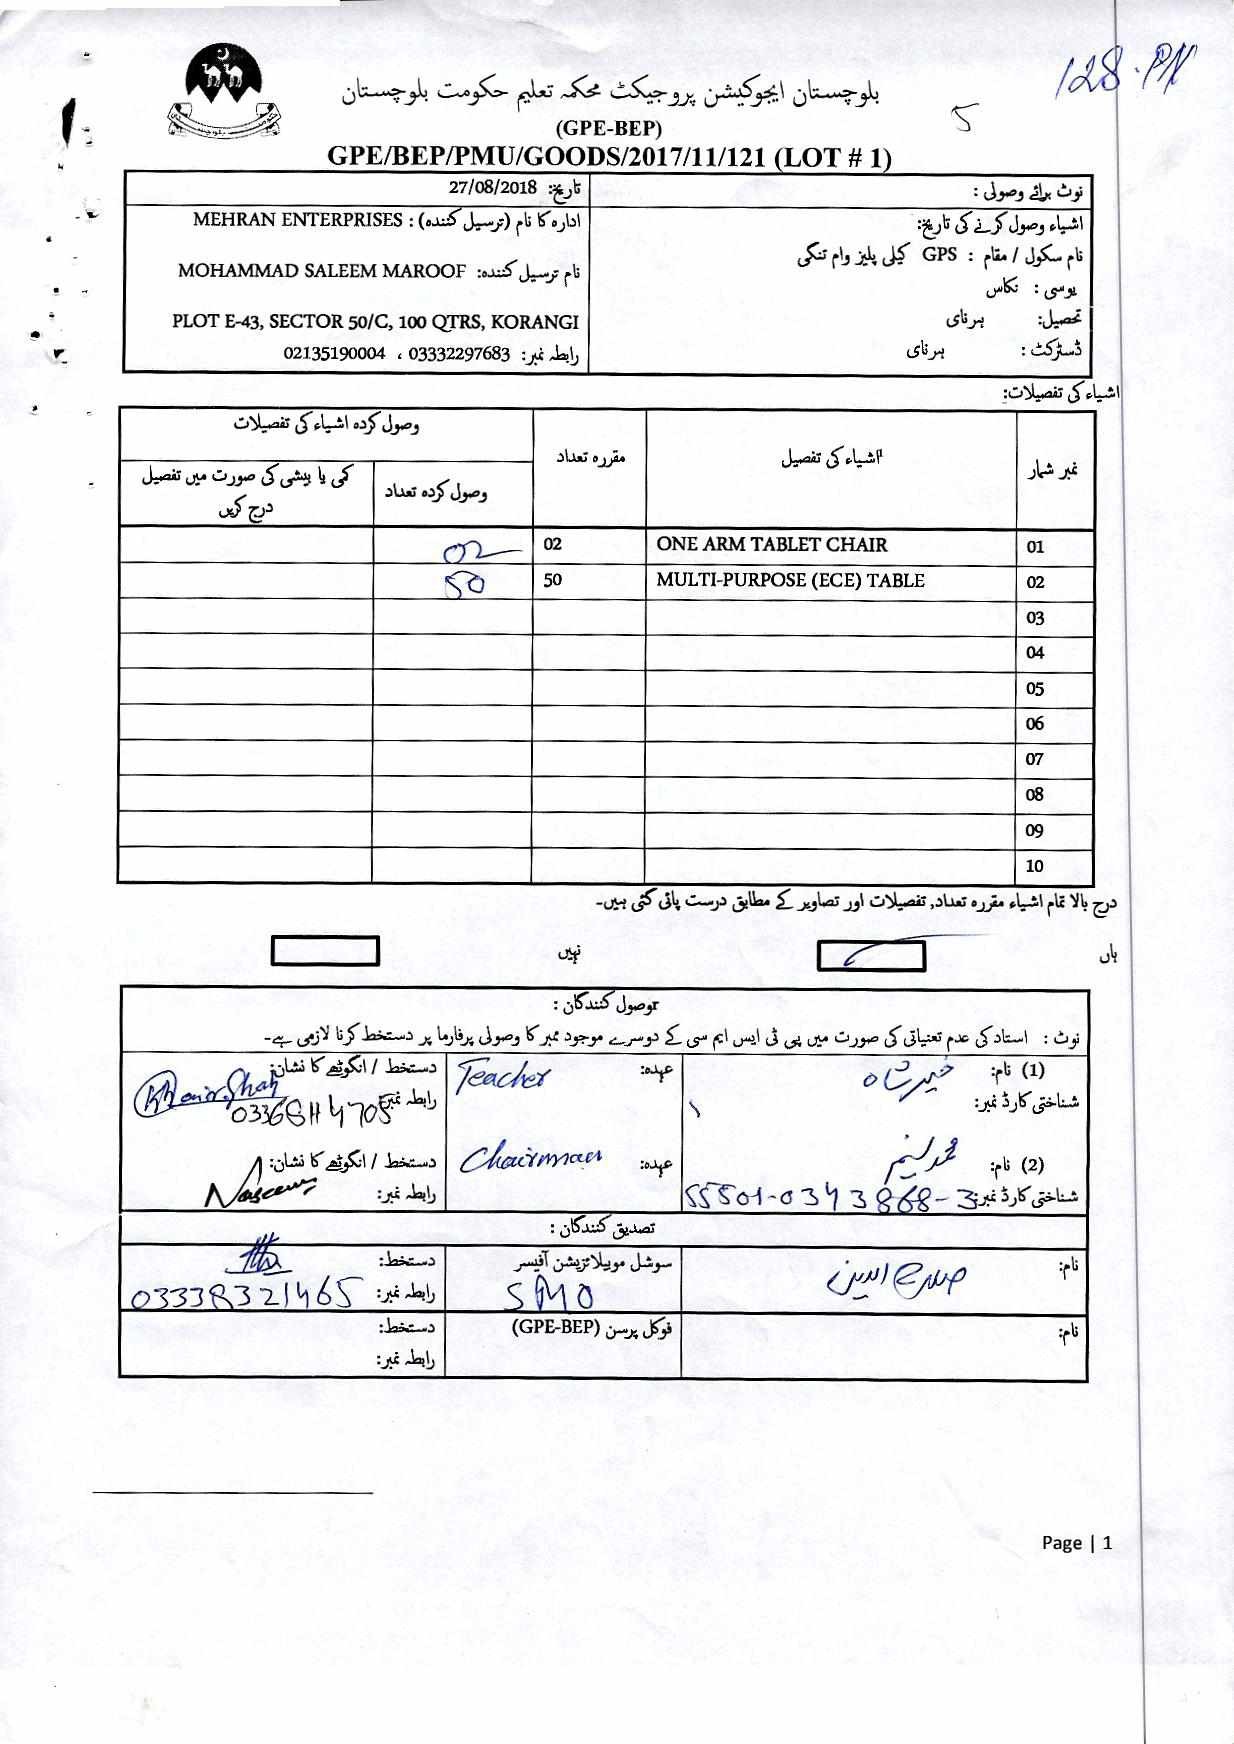 128-PN
5
بلوچستان ایجوکیشن پروجیکٹ محکمہ تعلیم حکومت بلوچستان
(GPE-BEP)
GPE/BEP/PMU/GOODS/2017/11/121 (LOT # 1)
نوٹ برائے وصولی :
اشیاء وصول کرنے کی تاریخ:
نام سکول / مقام : GPS کیلی پلیز وام تنگی
یوسی : نکاس
تحصیل: ہرنای
ڈسٹرکٹ : ہرنای
تاریخ: 27/08/2018
ادارہ کا نام (ترسیل کنندہ) : MEHRAN ENTERPRISES
نام ترسیل کنندہ: MOHAMMAD SALEEM MAROOF
PLOT E-43, SECTOR 50/C, 100 QTRS, KORANGI
رابطہ نمبر: 03332297683 ، 02135190004
اشیاء کی تفصیلات:
نمبر شمار اشیاء کی تفصیل مقررہ تعداد وصول کردہ اشیاء کی تفصیلات
وصول کردہ تعداد کمی یا بیشی کی صورت میں تفصیل درج کریں
01 ONE ARM TABLET CHAIR 02 02
02 MULTI-PURPOSE (ECE) TABLE 50 50
03
04
05
06
07
08
09
10
درج بالا تمام اشیاء مقررہ تعداد, تفصیلات اور تصاویر کے مطابق درست پائی گئی ہیں۔
ہاں نہیں
وصول کنندگان :
نوٹ : استاد کی عدم تعنیاتی کی صورت میں پی ٹی ایس ایم سی کے دوسرے موجود ممبر کا وصولی پرفارما پر دستخط کرنا لازمی ہے۔
(1) نام: خیر شاہ عہدہ: Teacher دستخط / انگوٹھے کا نشان:
شناختی کارڈ نمبر: رابطہ نمبر:
(2) نام: محمد نسیم عہدہ: Chairman دستخط / انگوٹھے کا نشان: Naseem
شناختی کارڈ نمبر: 55501-0343868-3 رابطہ نمبر:
تصدیق کنندگان :
نام: سوشل موبیلائزیشن آفیسر دستخط:
SMO رابطہ نمبر: 03338321465
نام: فوکل پرسن (GPE-BEP) دستخط:
رابطہ نمبر:
Page | 1